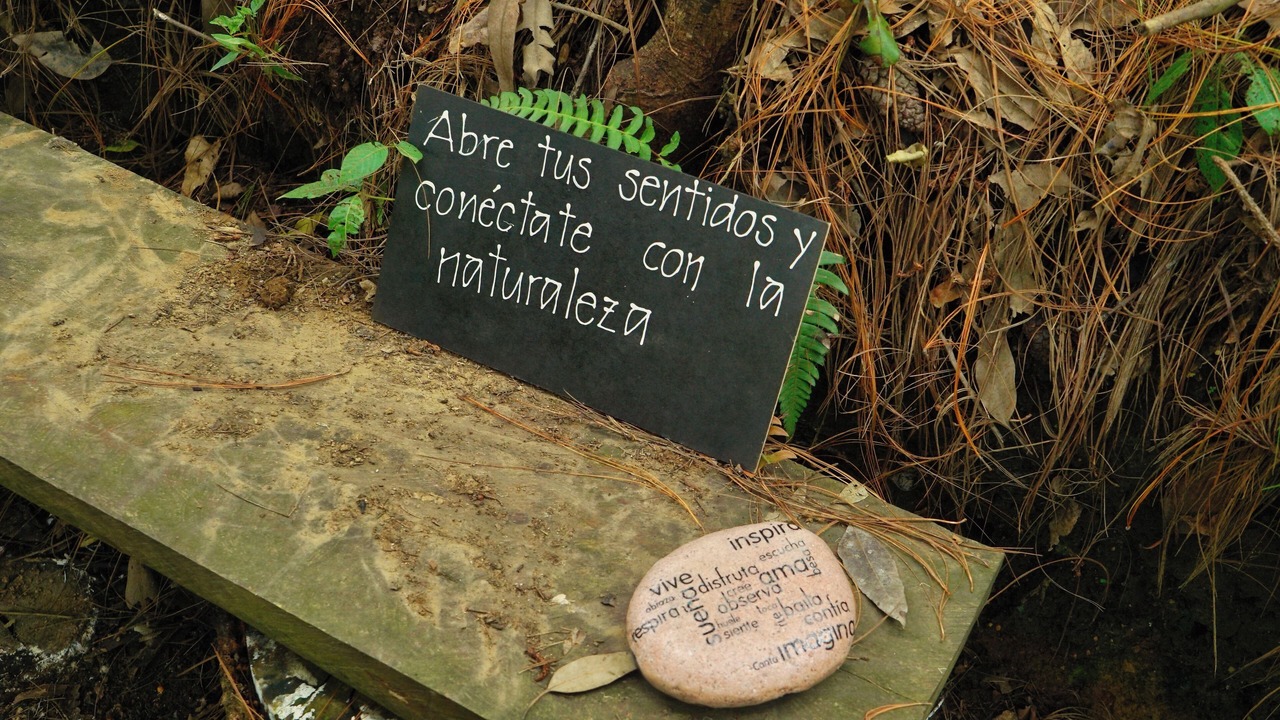 Abre tus sentidos y
conéctate con la
naturaleza
inspira
escucha
vive
disfruta
ama
besa
abraza
observa
respira
sueña
baila
huele
siente
toca
confía
Canta
Imagina